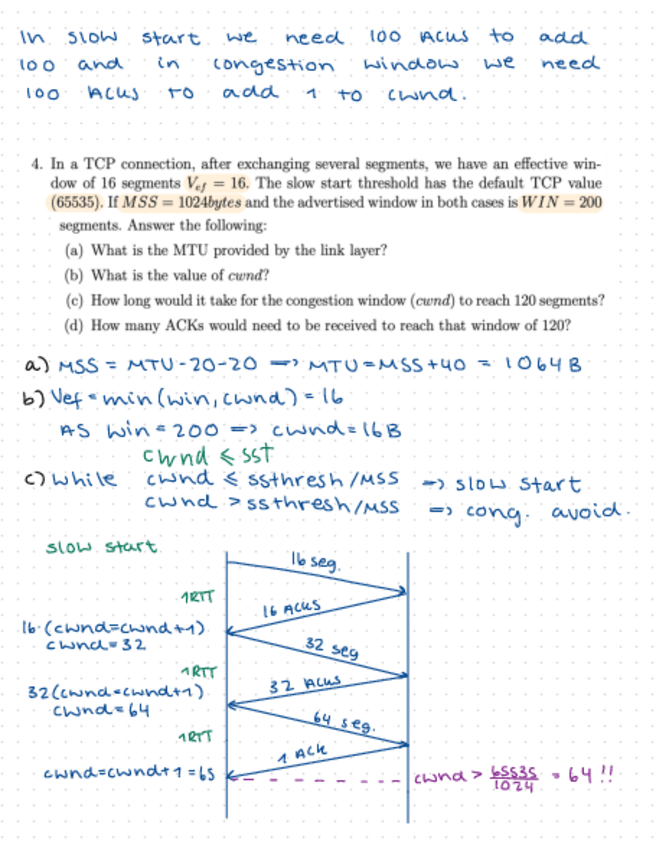 In slow start we need 100 ACUs to add
100 and in congestion window we need
100 ACUs to add 1 to cwnd.
4. In a TCP connection, after exchanging several segments, we have an effective win-
dow of 16 segments V_ef = 16. The slow start threshold has the default TCP value
(65535). If MSS = 1024bytes and the advertised window in both cases is WIN = 200
segments. Answer the following:
(a) What is the MTU provided by the link layer?
(b) What is the value of cwnd?
(c) How long would it take for the congestion window (cwnd) to reach 120 segments?
(d) How many ACKs would need to be received to reach that window of 120?
a) MSS = MTU-20-20 => MTU=MSS+40 = 1064B
b) Vef = min(win, cwnd) = 16
AS win=200 => cwnd=16B
cwnd ≤ sst
c) while cwnd ≤ ssthresh/MSS => slow start
cwnd > ssthresh/MSS => cong. avoid.
slow start
16 seg.
1RTT
16 ACUS
16·(cwnd=cwnd+1)
cwnd=32
32 seg
1RTT
32 ACUS
32(cwnd=cwnd+1)
cwnd=64
64 seg.
1RTT
1 ACK
cwnd=cwnd+1=65
cwnd > 65535/1024 = 64!!